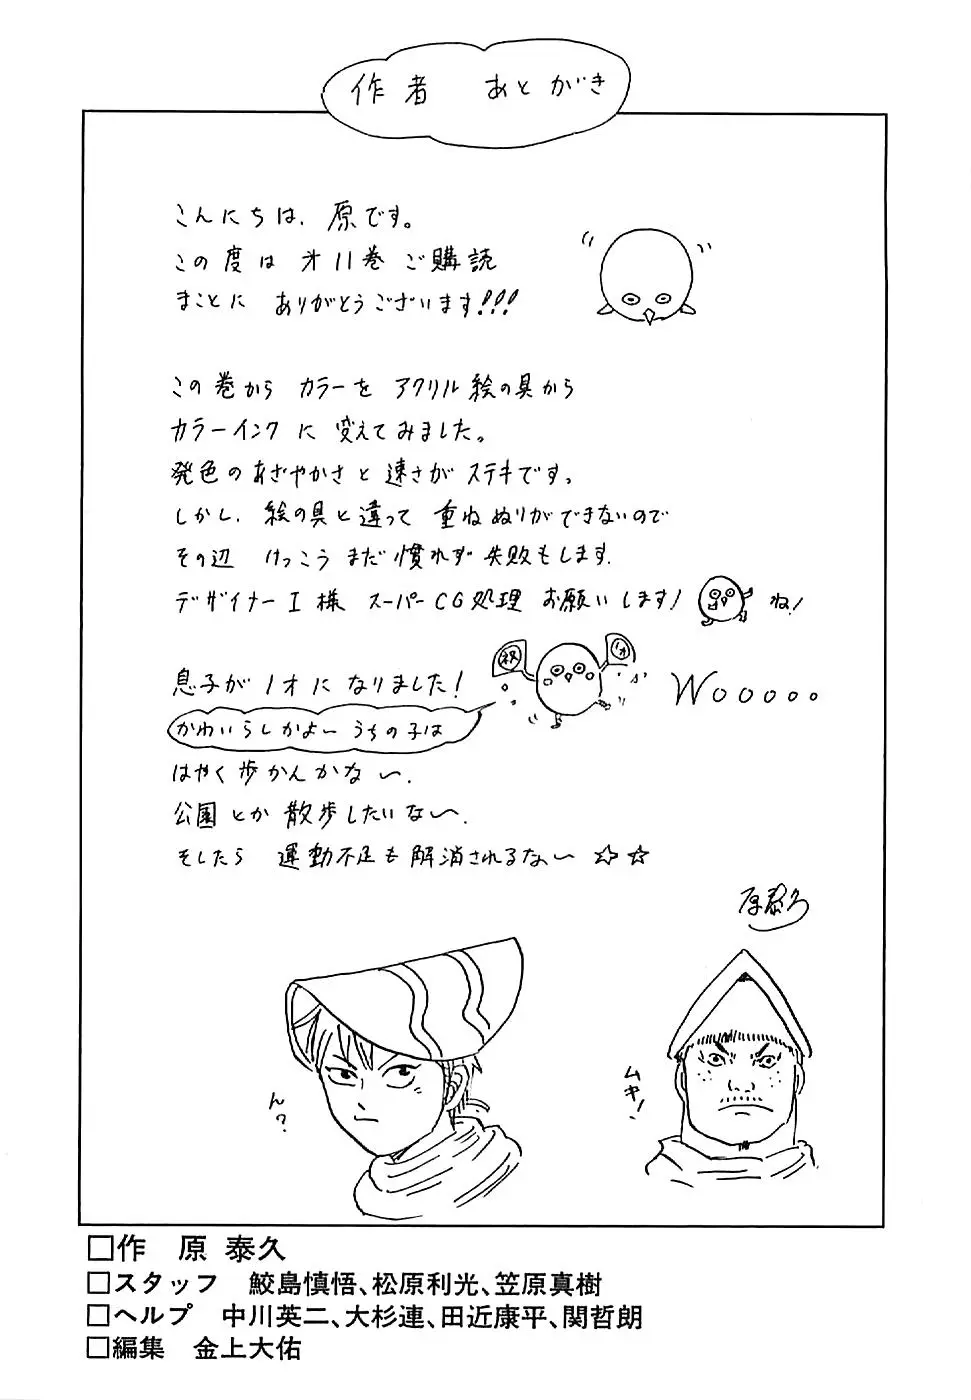 作者 あとがき
こんにちは、原です。
この度は 才11巻 ご購読
まことに ありがとうございます!!!
この巻から カラーを アクリル絵の具から
カラーインク に 変えてみました。
発色のあざやかさと 速さが ステキです。
しかし、絵の具と違って 重ねぬりができないので
その辺 けっこう まだ慣れず 失敗もします.
デザイナーI様 スーパーCG処理 お願いします! ね!
祝 1才
息子が 1才に なりました! Wooooo
かわいらしかよ〜 うちの子は
はやく 歩かんかな〜.
公園とか 散歩したいな〜.
そしたら 運動不足も 解消されるな〜 ☆☆
原泰久
ん?
ムキ!
□作 原 泰久
□スタッフ 鮫島慎悟、松原利光、笠原真樹
□ヘルプ 中川英二、大杉連、田近康平、関哲朗
□編集 金上大佑